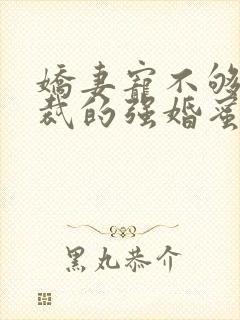 嬌妻寵不够
裁的强婚蜜
黑丸恭介